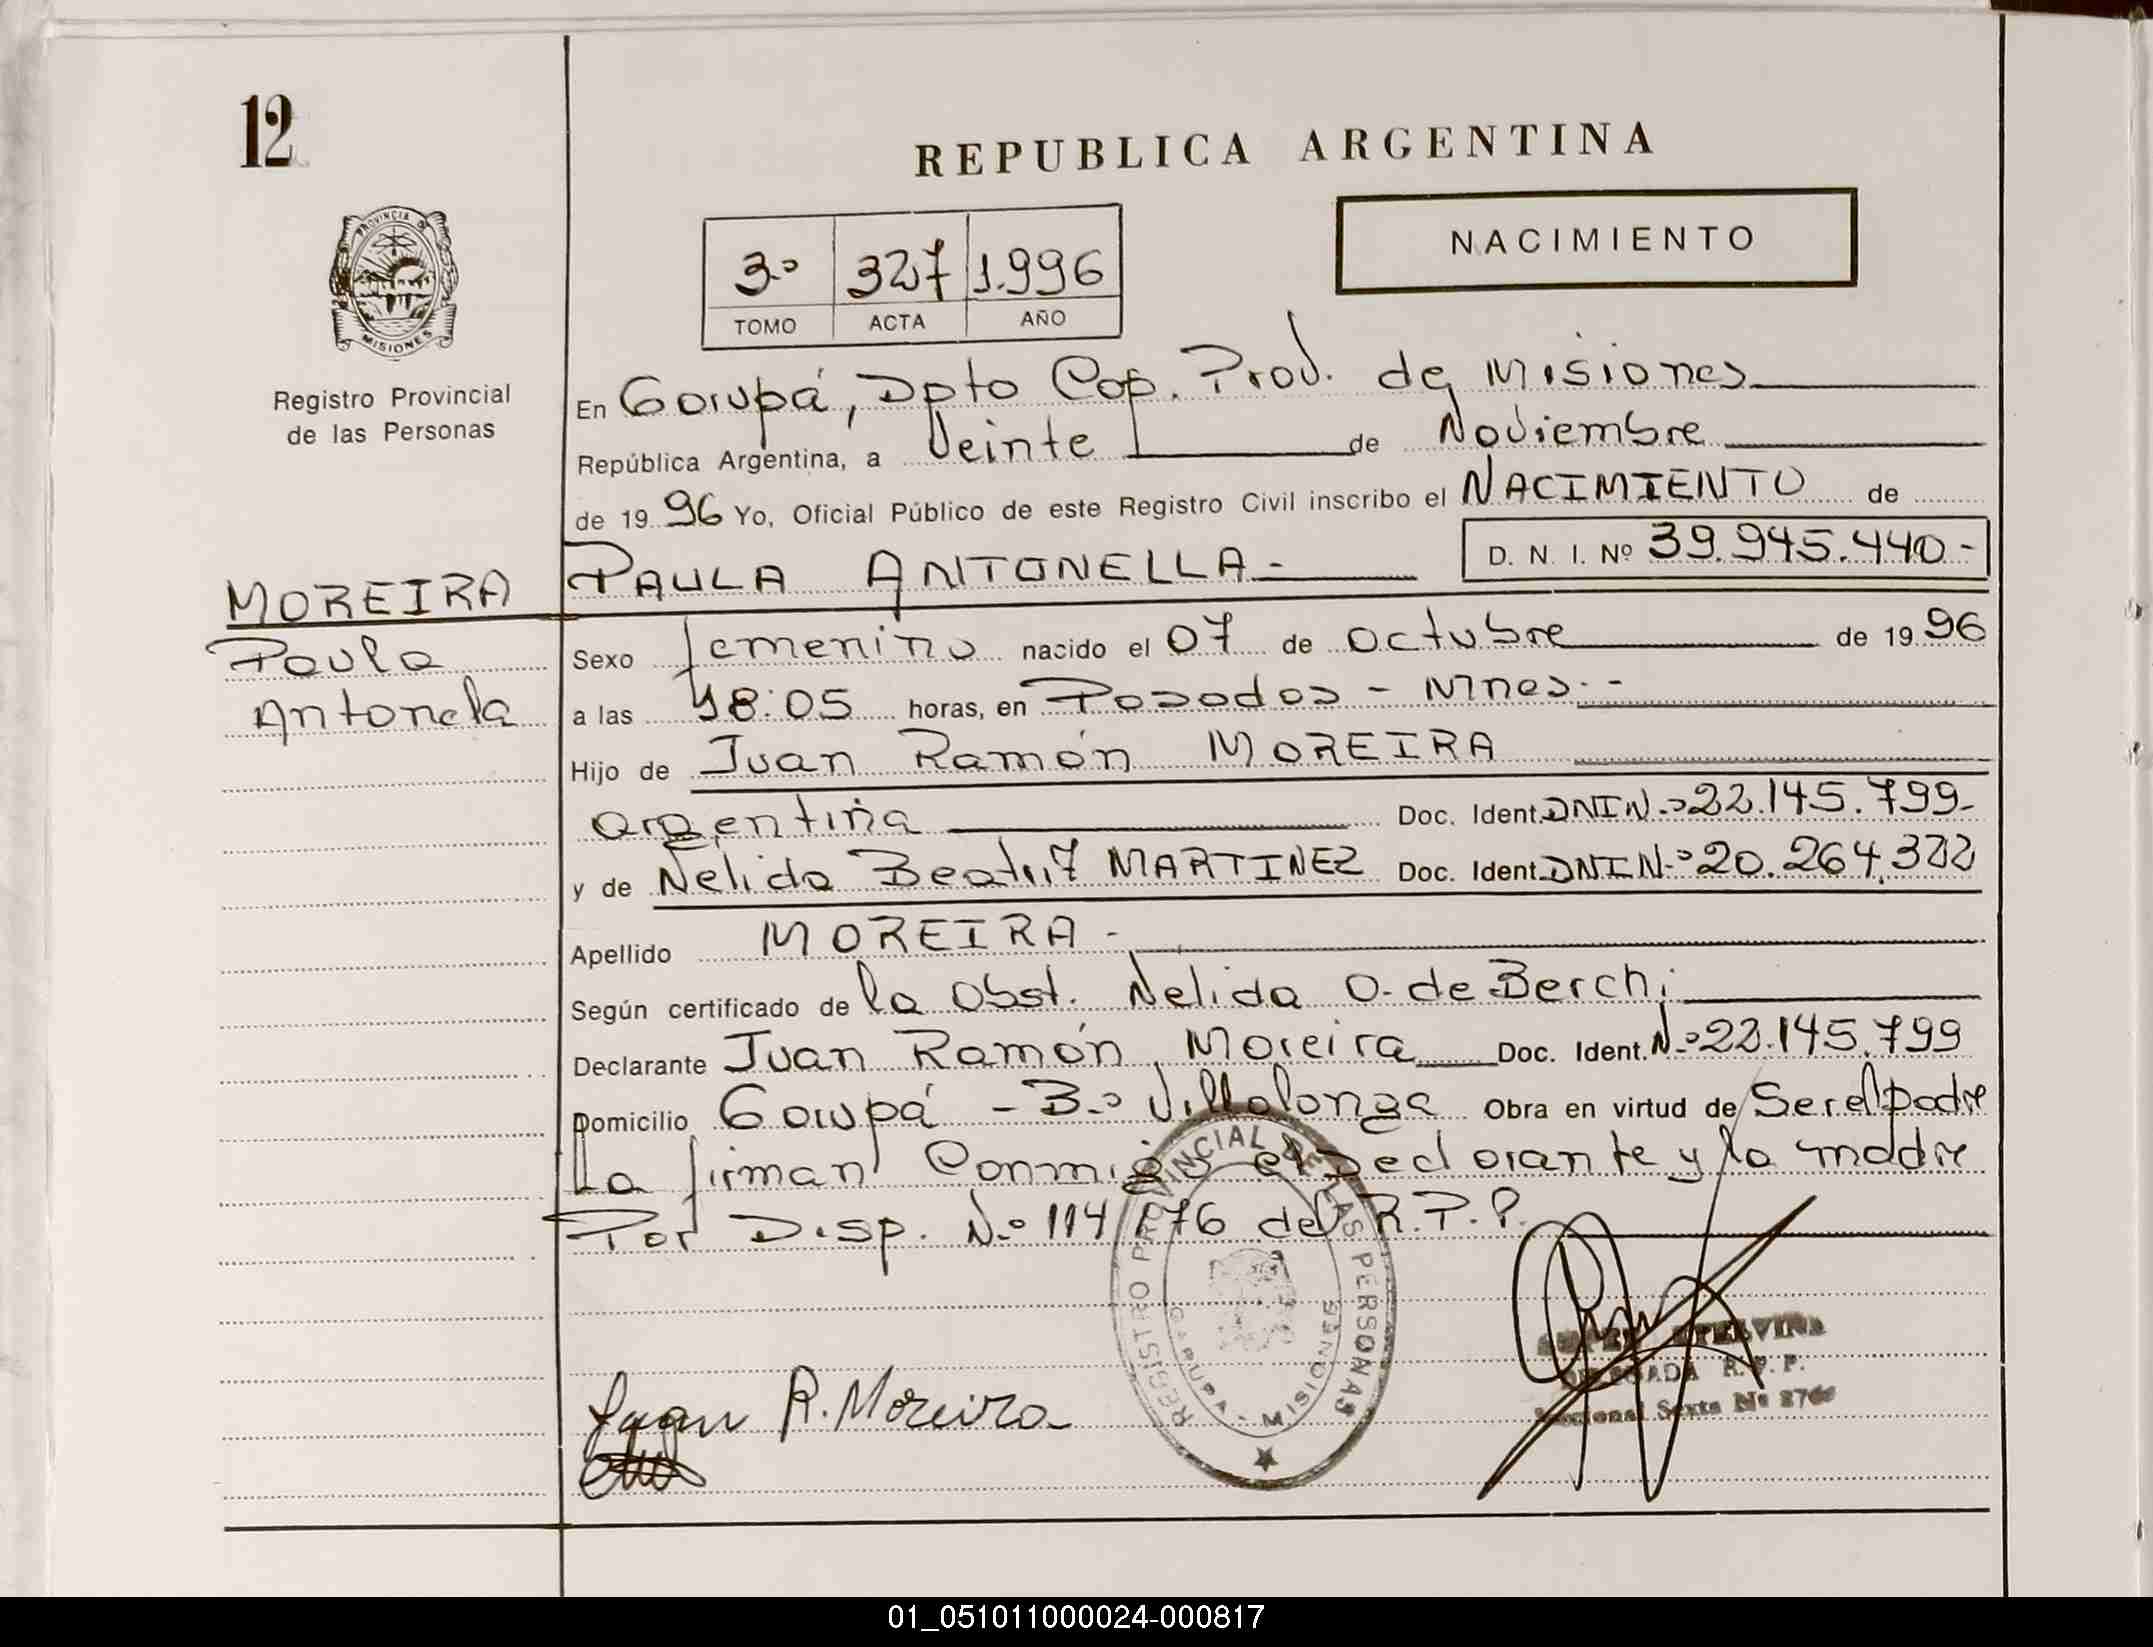 12
REPUBLICA ARGENTINA
NACIMIENTO
3º 327 1.996
TOMO ACTA AÑO
PROVINCIA DE
MISIONES
Registro Provincial
de las Personas
En Garupá, Dpto Cap. Prov. de Misiones
República Argentina, a Veinte de Noviembre
de 19 96 Yo, Oficial Público de este Registro Civil inscribo el NACIMIENTO de
PAULA ANTONELLA - D. N. I. Nº 39.945.440-
MOREIRA
Paula
Antonela
Sexo femenino nacido el 07 de octubre de 19 96
a las 18:05 horas, en Posadas - Mnes. -
Hijo de Juan Ramón MOREIRA
argentina Doc. Ident. DNI Nº 22.145.799-
y de Nelida Beatriz MARTINEZ Doc. Ident. DNI Nº 20.264.322
Apellido MOREIRA -
Según certificado de la Obst. Nelida O. de Berchi
Declarante Juan Ramón Moreira Doc. Ident. Nº 22.145.799
Domicilio Garupá - Bº Villalonga Obra en virtud de Ser el padre
La firman Conmigo el Declarante y la madre
Por Disp. Nº 114/76 del R.P.P.
REGISTRO PROVINCIAL DE LAS PERSONAS
GARUPA - MISIONES
Juan R. Moreira
DELEGADA R. P. P.
Seccional Sexta Nº
01_051011000024-000817